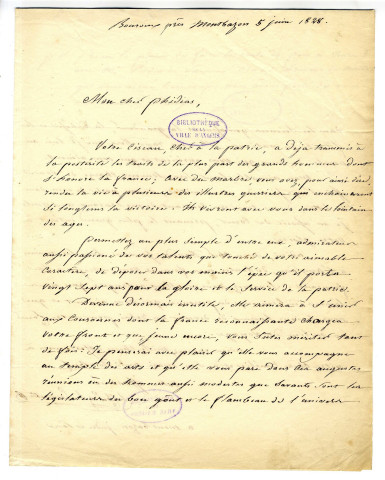 près Montbazon 5 juin 1828.
Mon cher Phidias,
BIBLIOTHÈQUE
DE LA
VILLE D'ANGERS
Votre ciseau, cher à la patrie, a déja transmis à
la postérité les traits de la plus part des grands hommes dont
s'honore la france; avec du marbre vous avez, pour ainsi dire,
rendu la vie à plusieurs des illustres guerriers qui enchainerent
si longtems la victoire: Ils vivront avec vous dans le lointain
des ages.
Permettez au plus simple d'entre eux, admirateur
aussi passionné de vos talents que touché de votre aimable
caractere, de déposer dans vos mains l'épée qu'il porta
vingt sept ans pour la gloire et le service de la patrie.
Devenue désormais inutile, elle aimera à s'unir
aux Couronnes dont la france reconnaissante chargea
votre front et que jeune encore, vous sutes mériter tant
de fois: Je penserai avec plaisir qu'elle vous accompagne
au temple des arts et qu'elle vous pare dans ces augustes
réunions où des hommes aussi modestes que savants sont les
législateurs du bon goût et le flambeau de l'univers